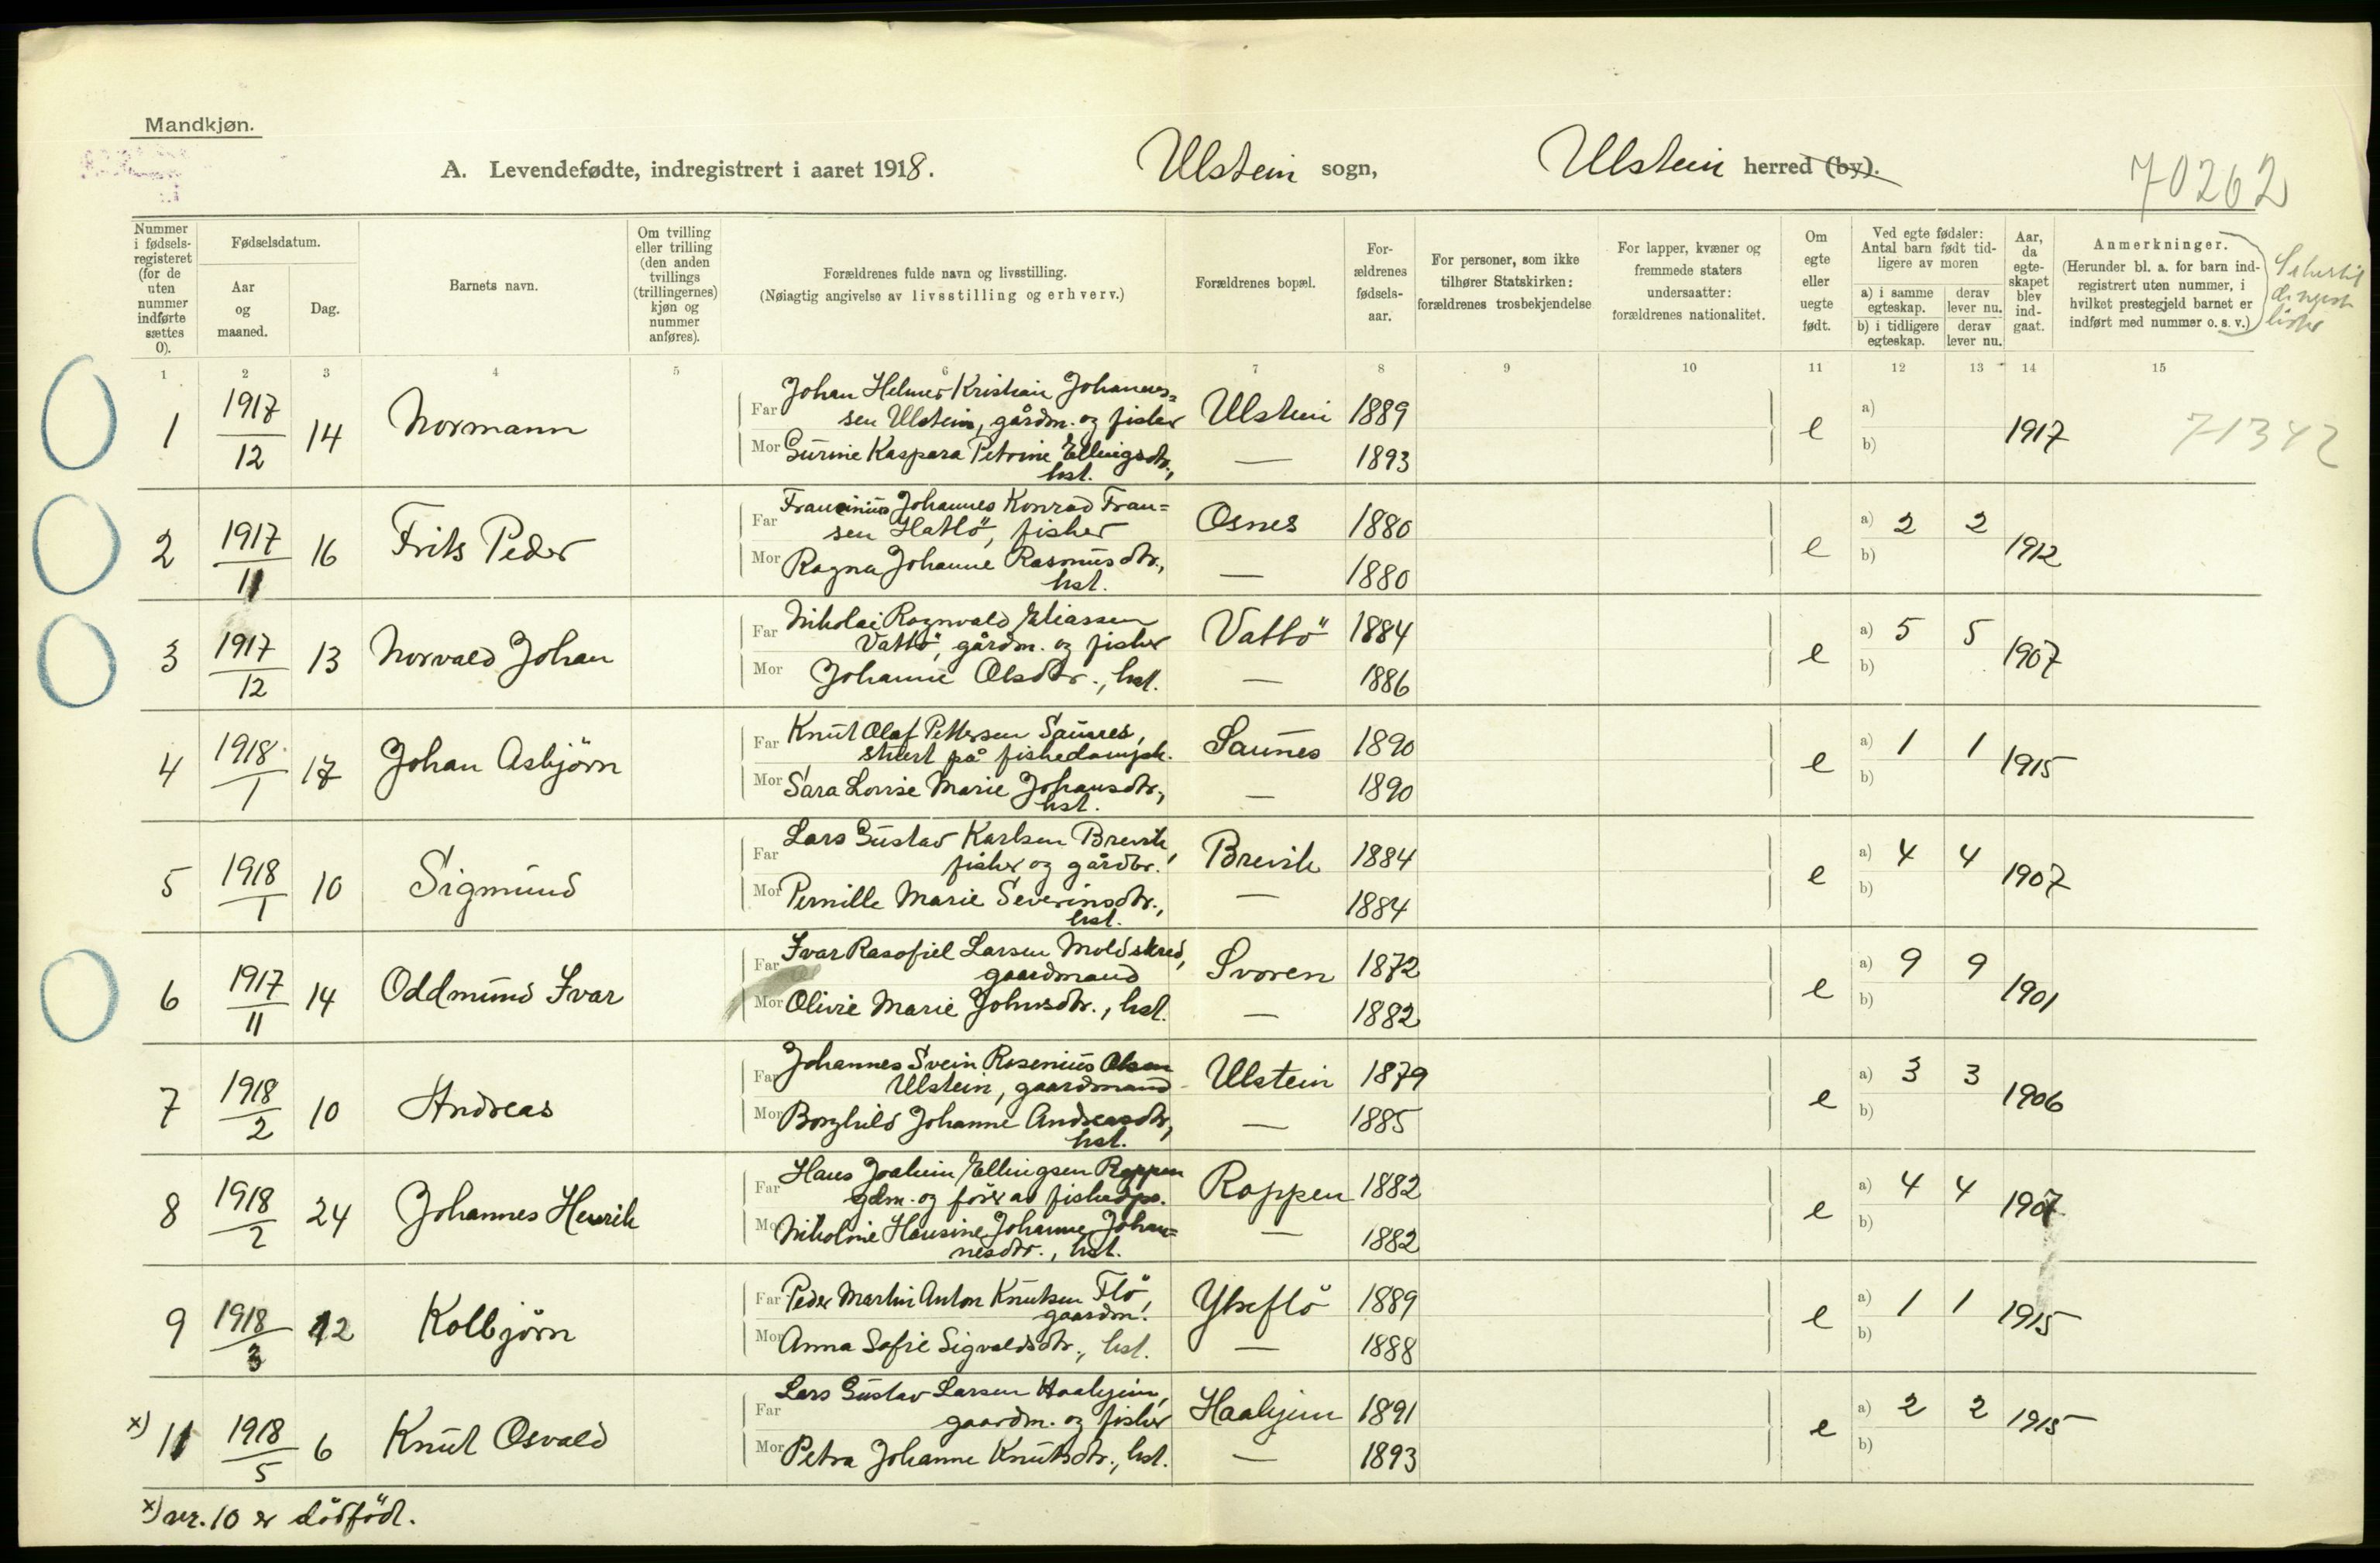 Mandkjøn.
A. Levendefødte, indregistrert i aaret 1918. Ulstein sogn, Ulstein herred (by).
70262
Nummer i fødsels-registeret (for de uten nummer indførte sættes 0).
Fødselsdatum.
Aar og maaned.
Dag.
Barnets navn.
Om tvilling eller trilling (den anden tvillings (trillingernes) kjøn og nummer anføres).
Forældrenes fulde navn og livsstilling.
(Nøiagtig angivelse av livsstilling og erhverv.)
Forældrenes bopæl.
For-ældrenes fødsels-aar.
For personer, som ikke tilhører Statskirken: forældrenes trosbekjendelse
For lapper, kvæner og fremmede staters undersaatter: forældrenes nationalitet.
Om egte eller uegte født.
Ved egte fødsler: Antal barn født tid-ligere av moren
a) i samme egteskap. derav lever nu.
b) i tidligere egteskap. derav lever nu.
Aar, da egte-skapet blev ind-gaat.
Anmerkninger.
(Herunder bl. a. for barn ind-registrert uten nummer, i hvilket prestegjeld barnet er indført med nummer o. s. v.)
1 2 3 4 5 6 7 8 9 10 11 12 13 14 15
1 1917/12 14 Normann
Far Johan Helmer Kristian Johannes=
sen Ulstein, gårdm. og fisker Ulstein 1889
Mor Gurine Kaspara Petrine Ellingsdtr.,
hst. — 1893
e a) b) 1917
71342
2 1917/11 16 Frits Peder
Far Fransinius Johannes Konrad Fran=
sen Hatlö, fisker Osnes 1880
Mor Ragna Johanne Rasmusdtr.,
hst. — 1880
e a) 2 2 b) 1912
3 1917/12 13 Norvald Johan
Far Nikolai Ragnvald Eliassen
Vattö, gårdm. og fisker Vattö 1884
Mor Johanne Olsdtr., hst. — 1886
e a) 5 5 b) 1907
4 1918/1 17 Johan Asbjörn
Far Knut Olaf Pettersen Saunes,
stuert på fiskedampsk. Saunes 1890
Mor Sara Lovise Marie Johansdtr.,
hst. — 1890
e a) 1 1 b) 1915
5 1918/1 10 Sigmund
Far Lars Gustav Karlsen Brevik,
fisker og gårdbr. Brevik 1884
Mor Pernille Marie Severinsdtr.,
hst. — 1884
e a) 4 4 b) 1907
6 1917/11 14 Oddmund Ivar
Far Ivar Rasofiel Larsen Moldskred,
gaardmand Svoren 1872
Mor Olivie Marie Johnsdtr., hst. — 1882
e a) 9 9 b) 1901
7 1918/2 10 Andreas
Far Johannes Svein Rosenius Olsen
Ulstein, gaardmand Ulstein 1879
Mor Borghild Johanne Andreasdtr.,
hst. — 1885
e a) 3 3 b) 1906
8 1918/2 24 Johannes Henrik
Far Hans Joakim Ellingsen Roppen
gdm. og förer av fiskedps. Roppen 1882
Mor Nikoline Hansine Johanne Johan=
nesdtr., hst. — 1882
e a) 4 4 b) 1907
9 1918/3 12 Kolbjörn
Far Peder Martin Anton Knutsen Flö,
gaardm. Ytreflö 1889
Mor Anna Sofie Sigvaldsdtr., hst. — 1888
e a) 1 1 b) 1915
x) 11 1918/5 6 Knut Osvald
Far Lars Gustav Larsen Haahjem,
gaardm. og fisker Haahjem 1891
Mor Petra Johanne Knutsdtr., hst. — 1893
e a) 2 2 b) 1915
x) nr. 10 er dödfödt.